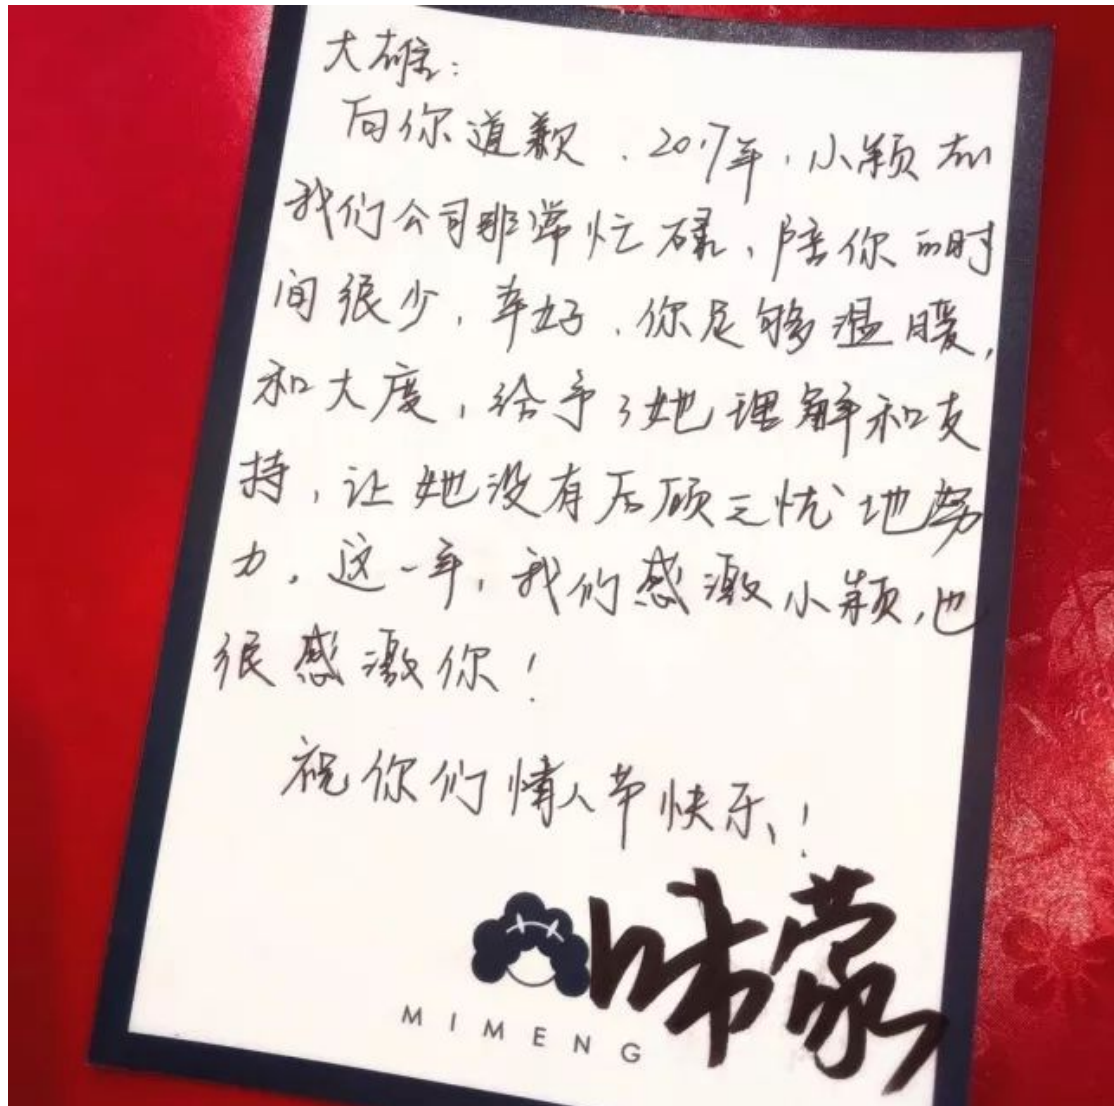 大雄:
向你道歉、2017年,小颖在
我们公司非常忙碌,陪你的时
间很少,幸好,你足够温暖,
和大度,给予了她理解和支
持,让她没有后顾之忧地努
力。这一年,我们感激小颖,也
很感激你!
祝你们情人节快乐!
咪蒙
MIMENG